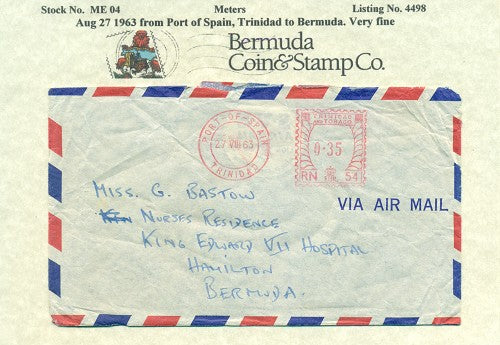 Stock No. ME 04 Meters Listing No. 4498
Aug 27 1963 from Port of Spain, Trinidad to Bermuda. Very fine
Bermuda
Coin & Stamp Co.
PORT-OF-SPAIN
27 VIII 63
TRINIDAD
TRINIDAD
AND TOBAGO
0·35
RN 54
MISS. G. BASTOW
NURSES RESIDENCE
VIA AIR MAIL
KING EDWARD VII HOSPITAL
HAMILTON
BERMUDA.